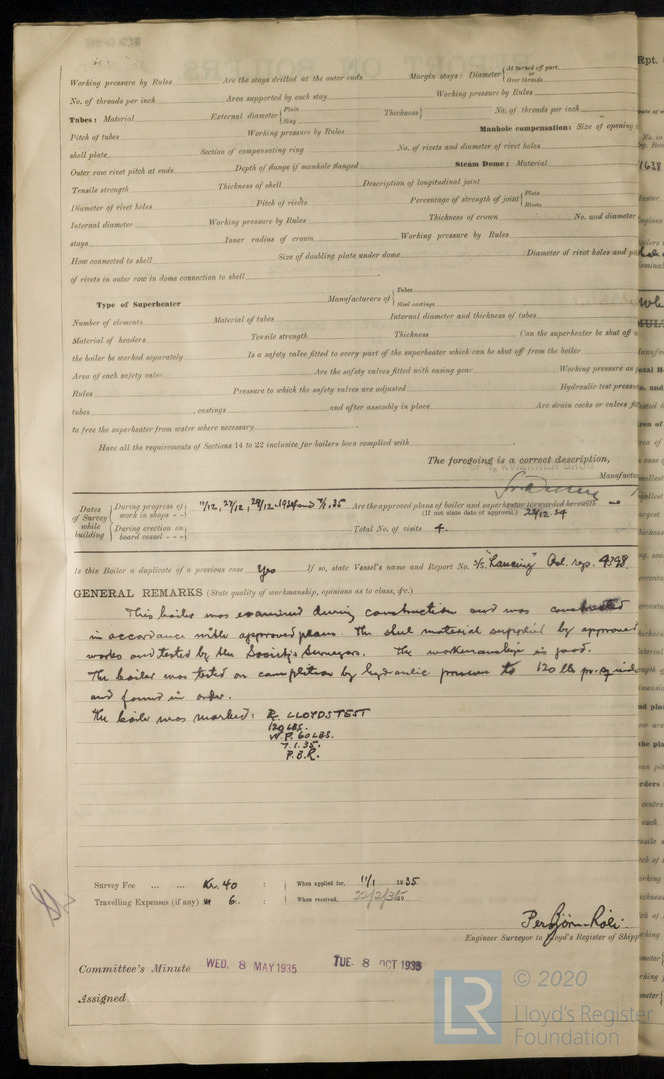 Working pressure by Rules Are the stays drilled at the outer ends Margin stays: Diameter { At turned off part, or Over threads
No. of threads per inch Area supported by each stay Working pressure by Rules
Tubes: Material External diameter { Plain Stay Thickness } No. of threads per inch
Pitch of tubes Working pressure by Rules Manhole compensation: Size of opening
shell plate Section of compensating ring No. of rivets and diameter of rivet holes
Outer row rivet pitch at ends Depth of flange if manhole flanged Steam Dome: Material
Tensile strength Thickness of shell Description of longitudinal joint
Diameter of rivet holes Pitch of rivets Percentage of strength of joint { Plate Rivets
Internal diameter Working pressure by Rules Thickness of crown No. and diameter
stays Inner radius of crown Working pressure by Rules
How connected to shell Size of doubling plate under dome Diameter of rivet holes and
of rivets in outer row in dome connection to shell
Type of Superheater Manufacturers of { Tubes Steel castings
Number of elements Material of tubes Internal diameter and thickness of tubes
Material of headers Tensile strength Thickness Can the superheater be shut off
the boiler be worked separately Is a safety valve fitted to every part of the superheater which can be shut off from the boiler
Area of each safety valve Are the safety valves fitted with easing gear Working pressure as
Rules Pressure to which the safety valves are adjusted Hydraulic test pressure
tubes , castings and after assembly in place Are drain cocks or valves
to free the superheater from water where necessary
Have all the requirements of Sections 14 to 22 inclusive for boilers been complied with
The foregoing is a correct description,
KVAERNER BRUG
Manufactur
Dates of Survey while building { During progress of work in shops - - } 11/12, 27/12, 29/12-1934 and 7/1.35 Are the approved plans of boiler and superheater forwarded herewith no
(If not state date of approval.) 22/12.34
{ During erection on board vessel - - - } Total No. of visits 4.
Is this Boiler a duplicate of a previous case Yes If so, state Vessel's name and Report No. S/S. "Lancing" Osl. rep. 4398
GENERAL REMARKS (State quality of workmanship, opinions as to class, &c.)
This boiler was examined during construction and was constructed
in accordance with approved plans. The steel material supplied by approved
works and tested by the Society's Surveyors. The workmanship is good.
The boiler was tested on completion by hydraulic pressure to 120 lbs pr. sq. inch
and found in order.
The boiler was marked: LR. LLOYDS TEST
120 LBS.
W.P. 60 LBS.
7.1.35.
P.B.R.
Survey Fee ... ... Kr. 40 : When applied for, 11/1 1935
Travelling Expenses (if any) 6 : When received, 22/2/35
Per Bjørn Roli.
Engineer Surveyor to Lloyd's Register of Shipp
Committee's Minute WED. 8 MAY 1935 TUE. 8 OCT 1935
Assigned
LR © 2020
Lloyd's Register
Foundation